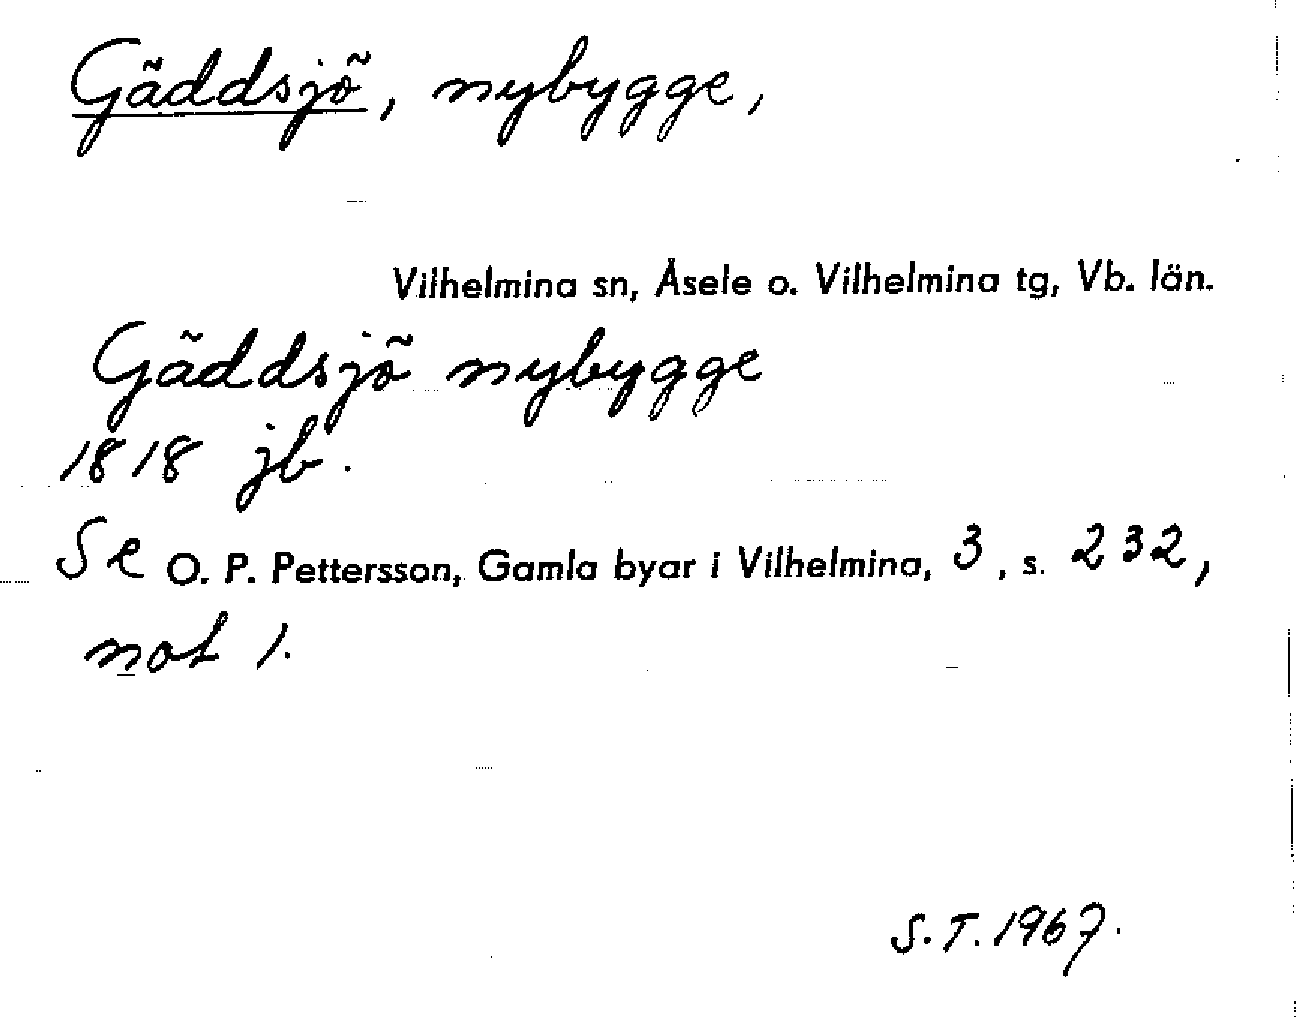 Gäddsjö, nybygge,
Vilhelmina sn, Åsele o. Vilhelmina tg, Vb. län.
Gäddsjö nybygge
1818 jb.
Se O. P. Pettersson, Gamla byar i Vilhelmina, 3, s. 232,
not 1.
S.T. 1967.